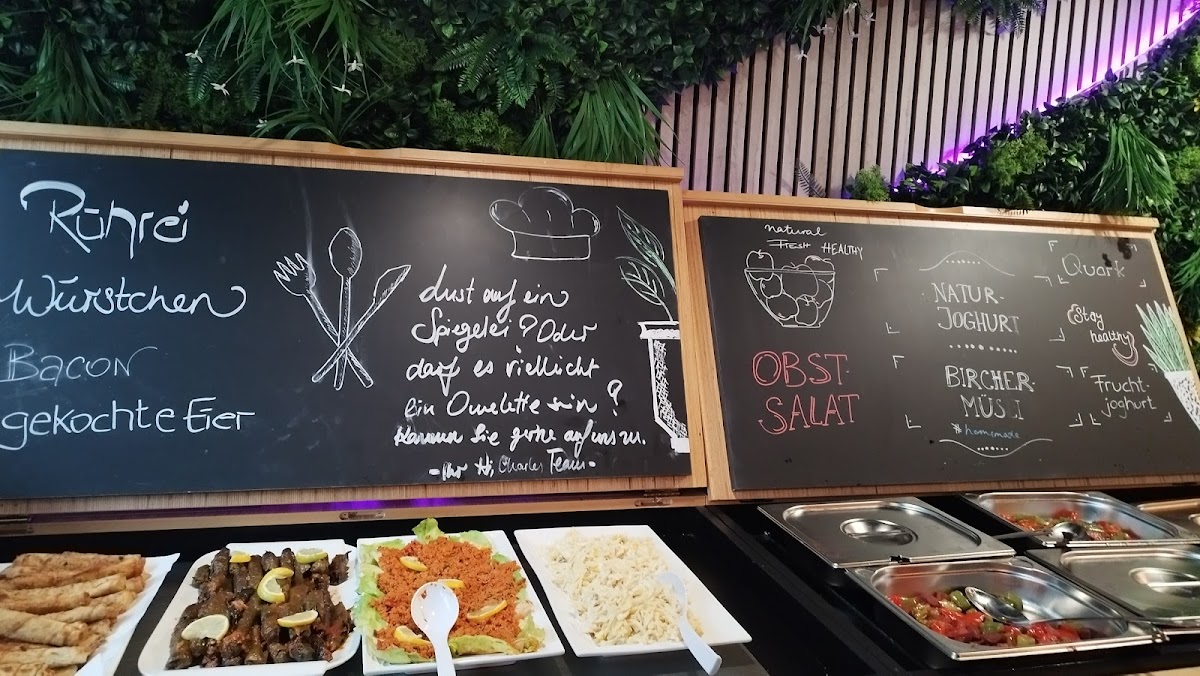 Rührei
Würstchen
Bacon
gekochte Eier
Lust auf ein
Spiegelei? Oder
darf es vielleicht
ein Omelette sein?
Kommen Sie gerne auf uns zu.
- Ihr Hi, Charles Team -
natural
Fresh HEALTHY
OBST-
SALAT
NATUR-
JOGHURT
BIRCHER-
MÜSLI
#homemade
Quark
Stay
healthy
Frucht-
joghurt